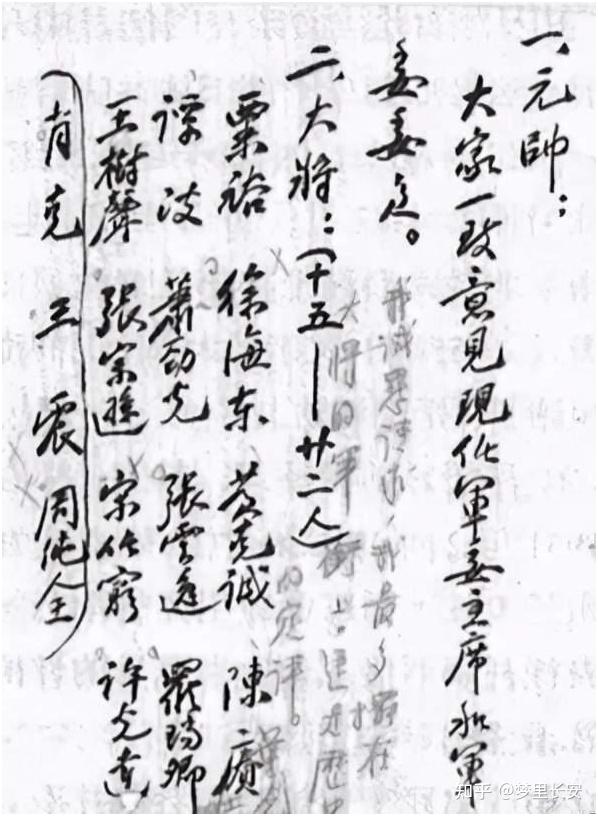 一、元帥：
大家一致意見現任軍委主席和軍
委委
二、大將：（十五——廿二人）
大將的軍銜上。
粟裕 徐海东 黄克诚 陳賡
谭政 蕭劲光 張雲逸 羅瑞卿
王樹聲 張宗遜 宋任窮 許光達
（肖克 王震 周纯全）
知乎 @梦里长安